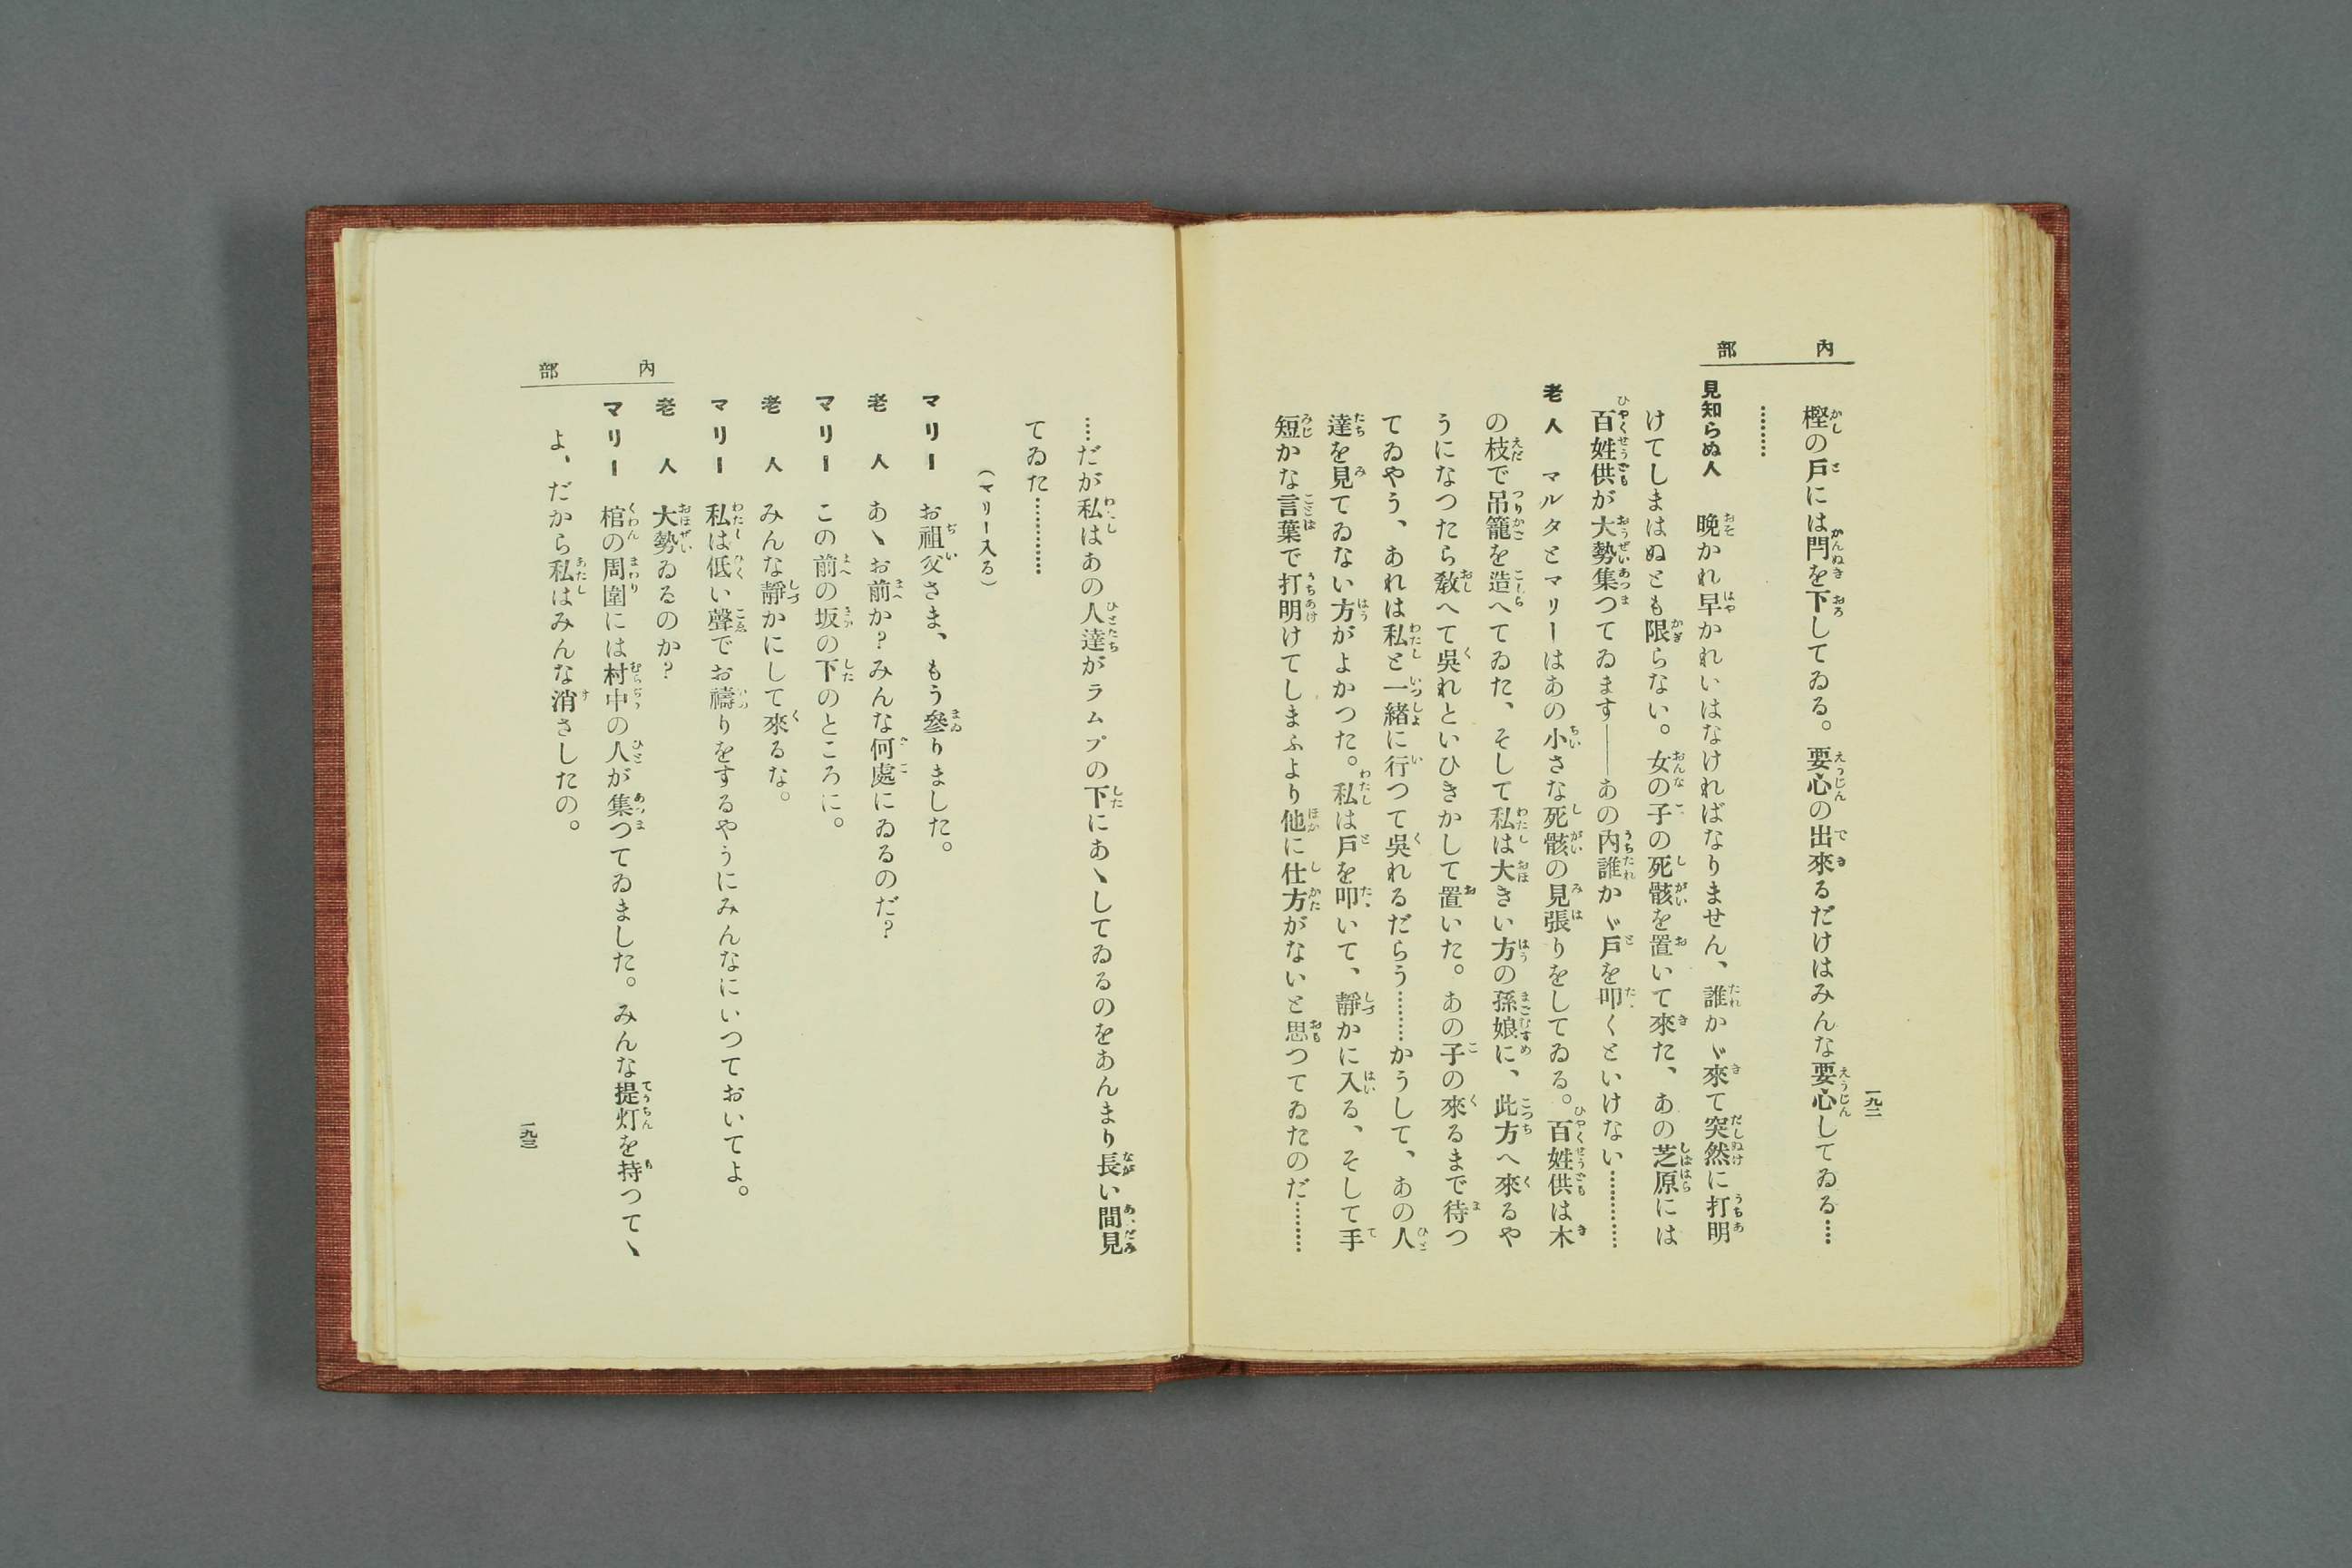 內部
一九二
樫の戶には閂を下してゐる。要心の出來るだけはみんな要心してゐる……
………
見知らぬ人 晩かれ早かれいはなければなりません、誰かゞ來て突然に打明
けてしまはぬとも限らない。女の子の死骸を置いて來た、あの芝原には
百姓供が大勢集つてゐます――あの內誰かゞ戶を叩くといけない…………
老人 マルタとマリーはあの小さな死骸の見張りをしてゐる。百姓供は木
の枝で吊籠を造へてゐた、そして私は大きい方の孫娘に、此方へ來るや
うになつたら敎へて吳れといひきかして置いた。あの子の來るまで待つ
てゐやう、あれは私と一緖に行つて吳れるだらう………かうして、あの人
達を見てゐない方がよかつた。私は戶を叩いて、靜かに入る、そして手
短かな言葉で打明けてしまふより他に仕方がないと思つてゐたのだ………
……だが私はあの人達がラムプの下にあゝしてゐるのをあんまり長い間見
てゐた…………
(マリー入る)
マリー お祖父さま、もう參りました。
老人 あゝお前か？みんな何處にゐるのだ？
マリー この前の坂の下のところに。
老人 みんな靜かにして來るな。
マリー 私は低い聲でお禱りをするやうにみんなにいつておいてよ。
老人 大勢ゐるのか？
マリー 棺の周圍には村中の人が集つてゐました。みんな提灯を持つてゝ
よ、だから私はみんな消さしたの。
內部
一九三